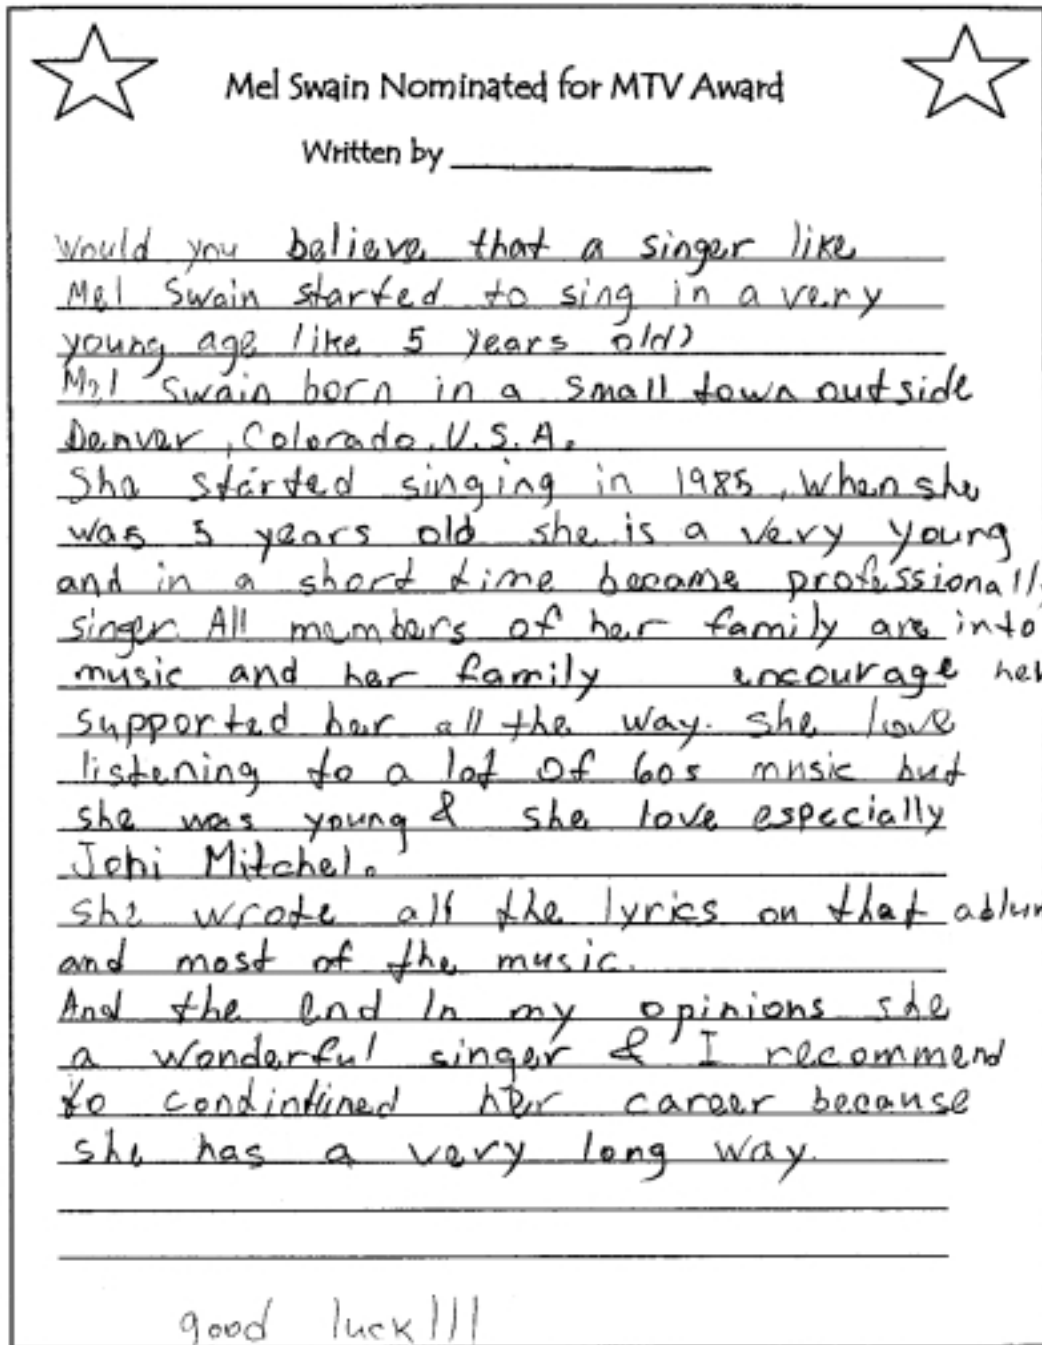 Mel Swain Nominated for MTV Award
Written by
Would you believe that a singer like
Mel Swain started to sing in a very
young age like 5 years old?
Mel Swain born in a small town outside
Denver, Colorado, U.S.A.
She started singing in 1985, when she
was 5 years old she is a very young
and in a short time became professionally
singer. All members of her family are into
music and her family encourage her
supported her all the way. she love
listening to a lot of 60s music but
she was young & she love especially
Joni Mitchel.
she wrote all the lyrics on that ablum
and most of the music.
And the end In my opinions she
a wonderful singer & I recommend
to condintined her career because
she has a very long way.
good luck!!!